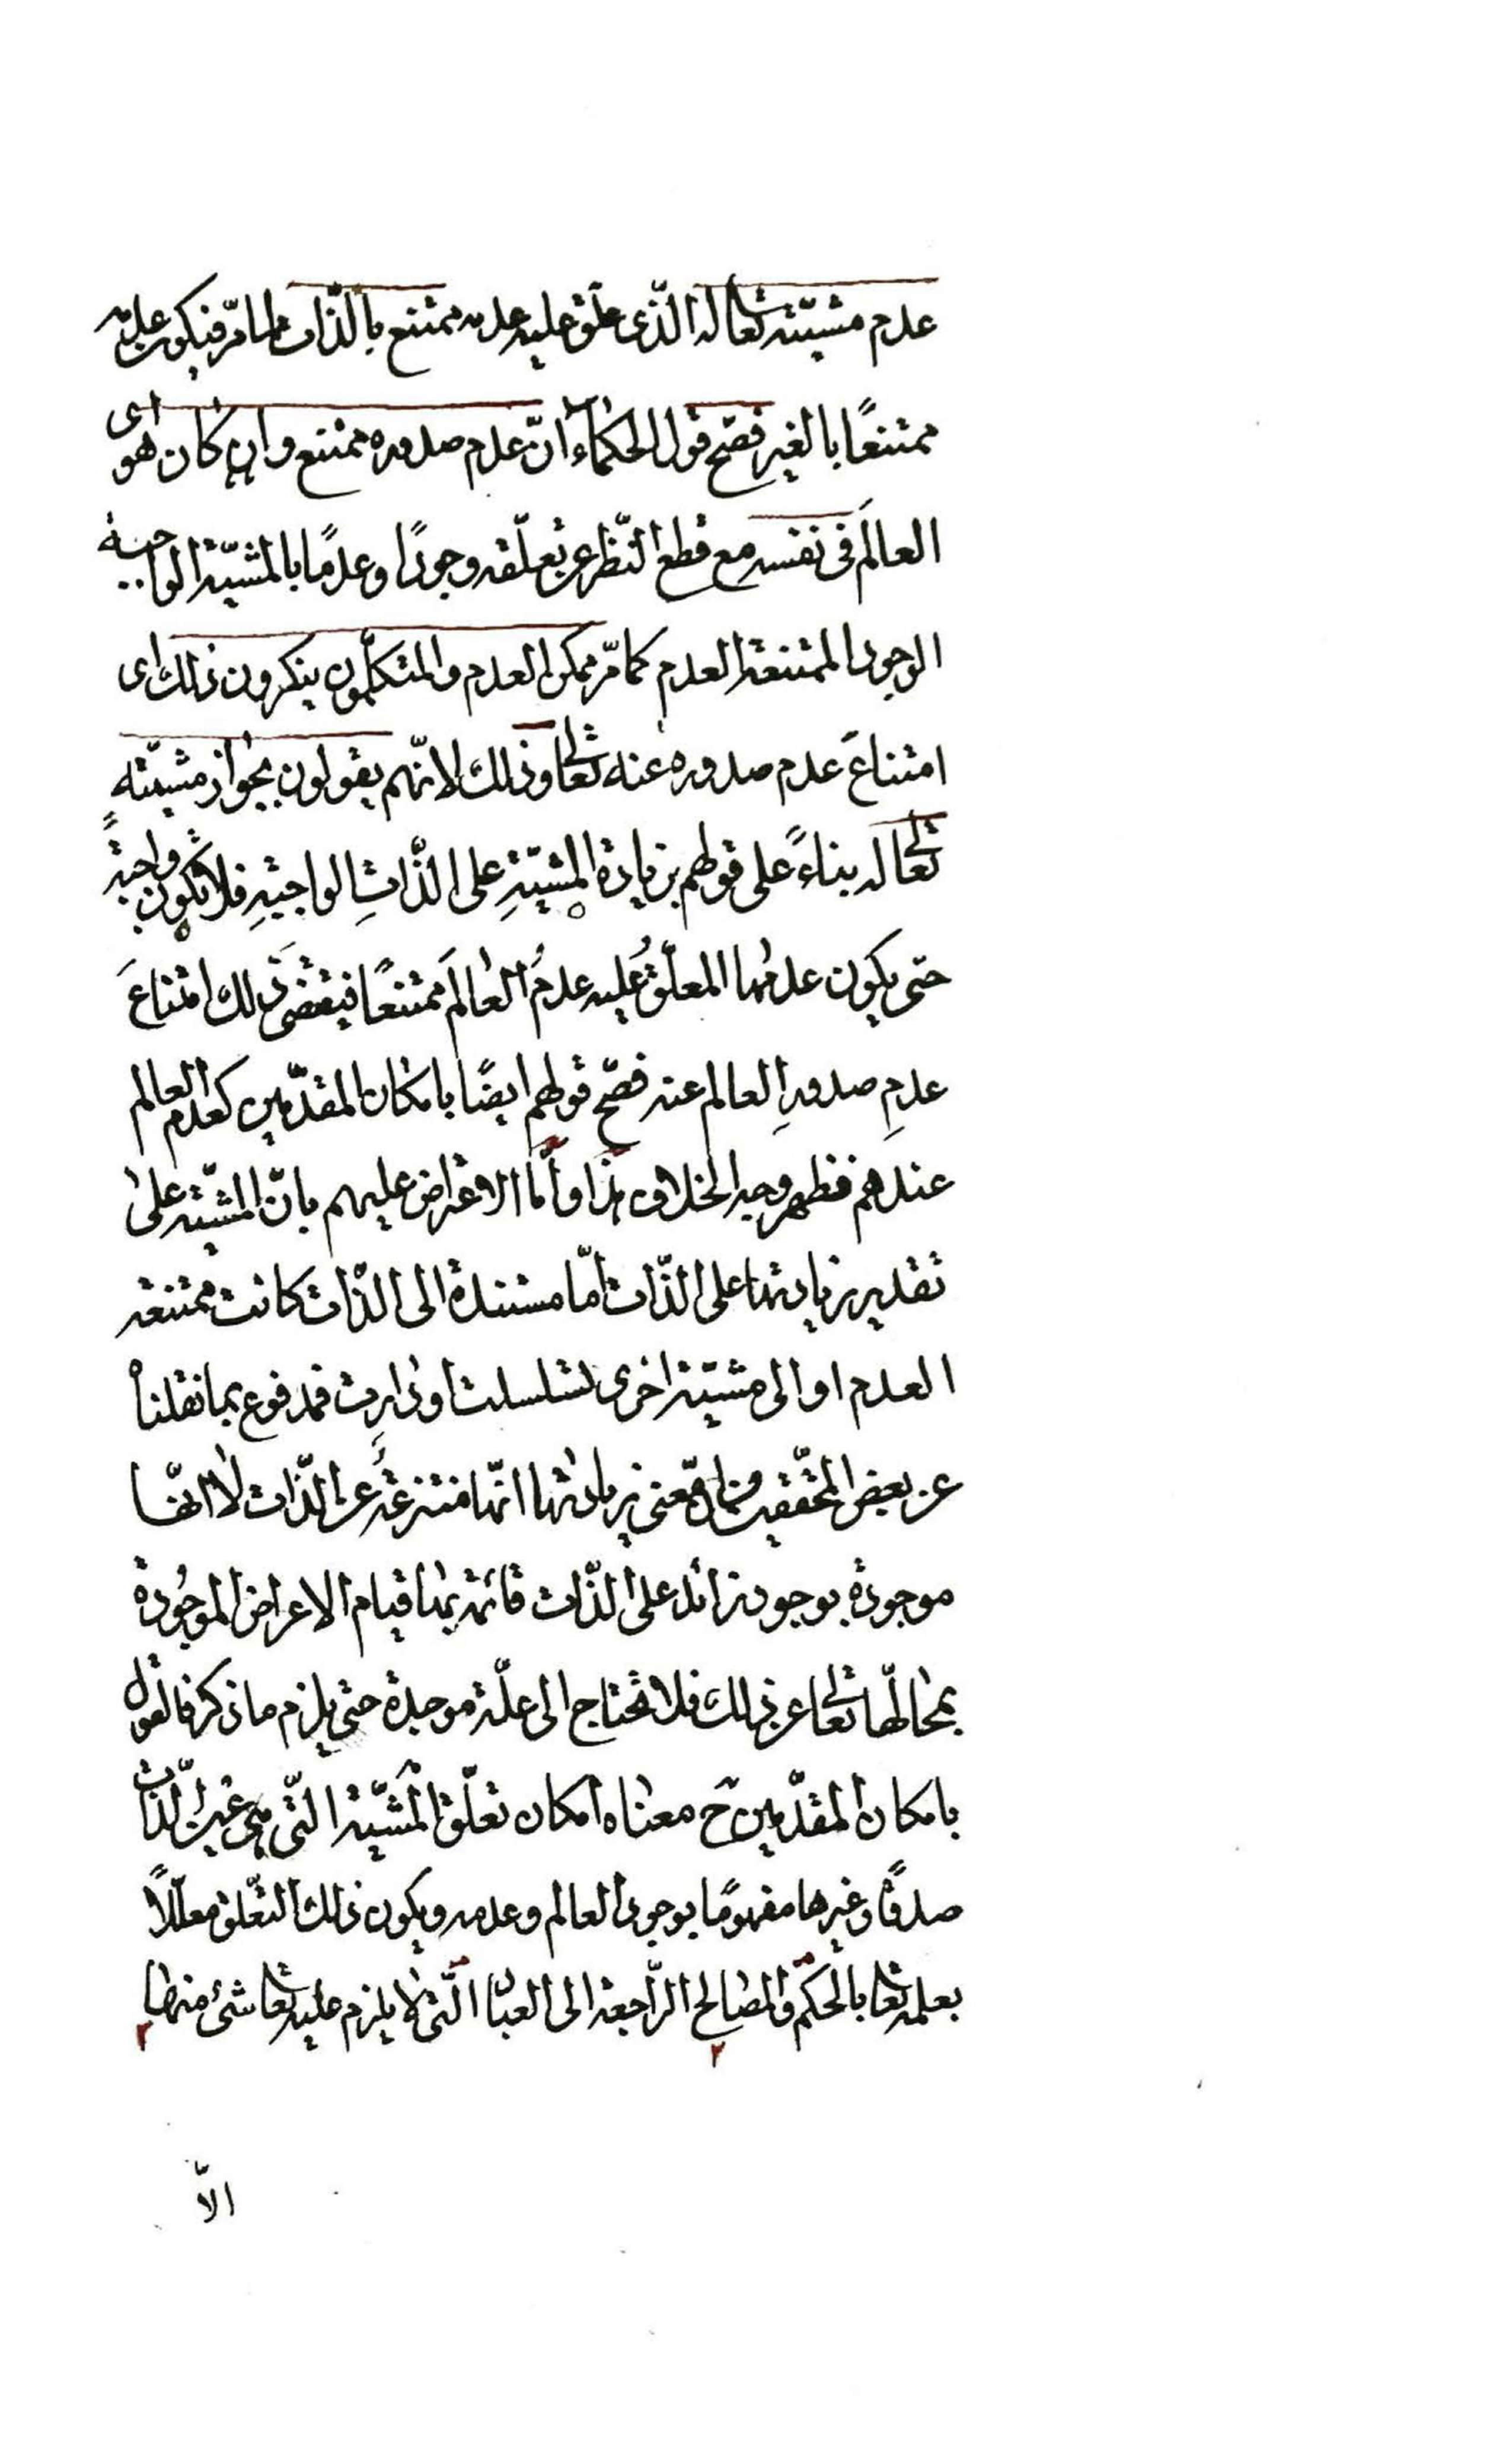 عدم مشيّته تعالى له الّذى علّق عليه عدمه ممتنع بالذّات لما مرّ فيكون عدمه
ممتنعًا بالغير فصحّ قول الحكماء انّ عدم صدوره ممتنع وان كان هو اى
العالَم فى نفسه مع قطع النّظر عن تعلّقه وجودًا وعدمًا بالمشيّة الواجبة
الوجود الممتنعة العدم كما مرّ ممكن العدم والمتكلّمون ينكرون ذلك اى
امتناعَ عدم صدوره عنه تعالى وذلك لانّهم يقولون بجواز مشيّته
تعالى له بناءً على قولهم بزيادة المشيّةِ على الذّاتِ الواجبةِ فلا تكون واجبةً
حتى يكون عدمها المعلّقُ عليه عدمُ العالَم ممتنعًا فيقتضى ذلك امتناعَ
عدمِ صدورِ العالم عنه فصحّ قولهم ايضًا بامكان المقدّمين كعدم العالم
عندهم فظهر وجه الخلاف هذا وأمّا الاعتراض عليهم بانّ المشيّة على
تقدير زيادتها على الذّات امّا مستندة الى الذّات كانت ممتنعة
العدم او الى مشيّة اخرى تسلسلت او دارت فمدفوع بما نقلناه
عن بعض المحقّقين من انّ معنى زيادتها انّها منتزعةٌ عن الذّات لا انّها
موجودة بوجود زائد على الذّات قائمة بها قيام الاعراض الموجُودة
بمحالّها تعالى عن ذلك فلا تحتاج الى علّة موجدة حتى يلزم ما ذكر فالقول
بامكان المقدّمين ح معناه امكان تعلّق المشيّة الّتى هى عين الذّات
صدقًا وغيرها مفهومًا بوجود العالم وعدمه ويكون ذلك التعّلق معلّلاً
بعلمه تعالى بالحكم والمصالح الرّاجعة الى العباد الّتى لا يلزم عليه تعالى شئ منها
٢ ٢
الاّ